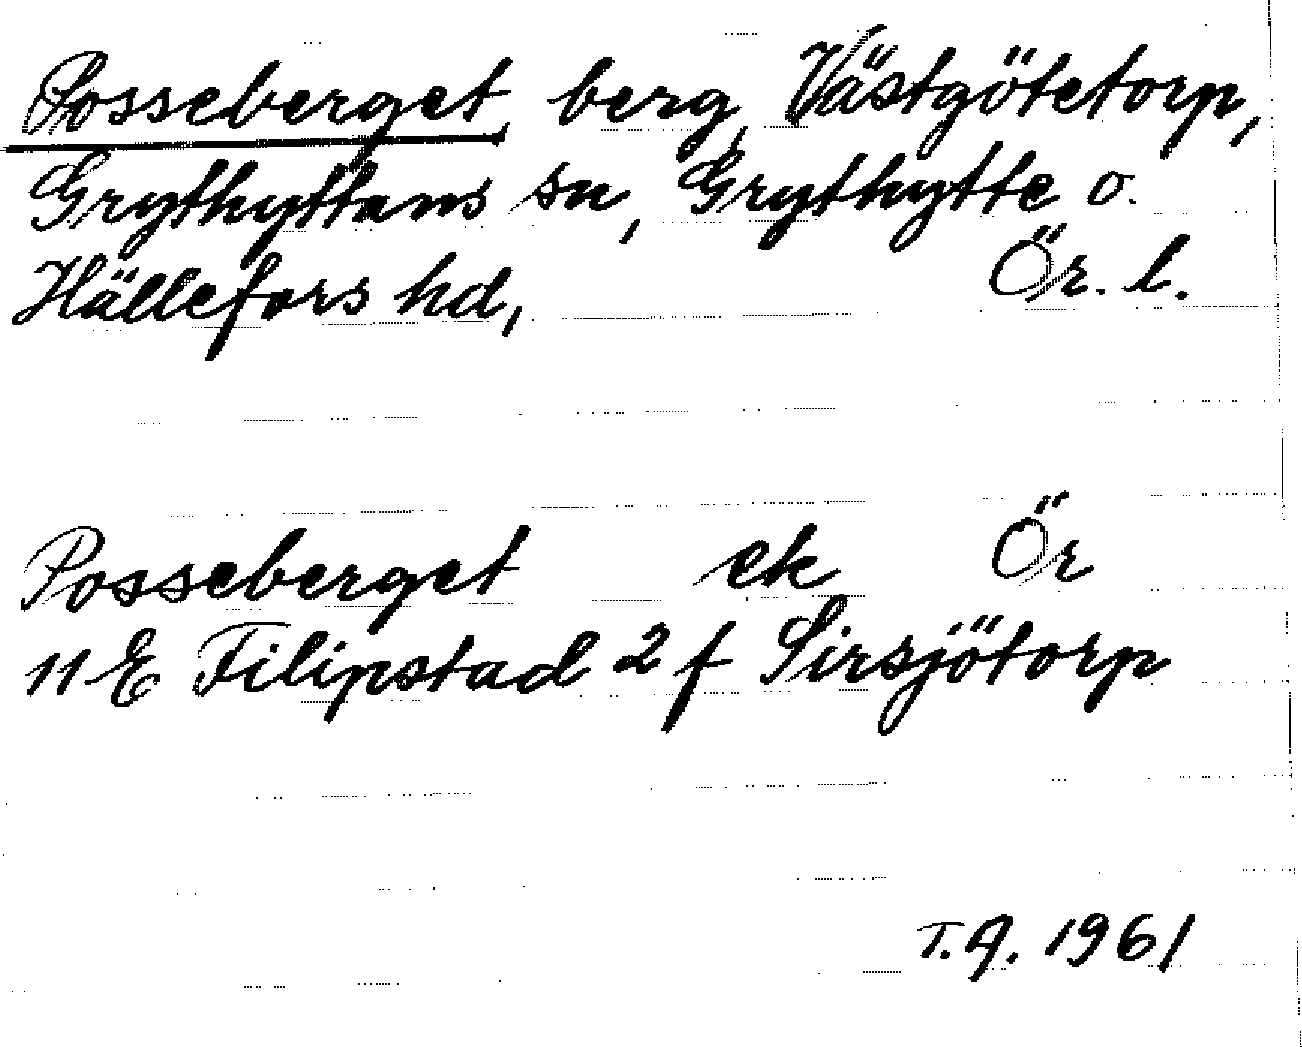 Posseberget, berg, Västgötetorp,
Grythyttans sn, Grythytte o.
Hällefors hd, Ör. l.
Posseberget ek Ör
11 E Filipstad 2 f Sirsjötorp
T.A. 1961